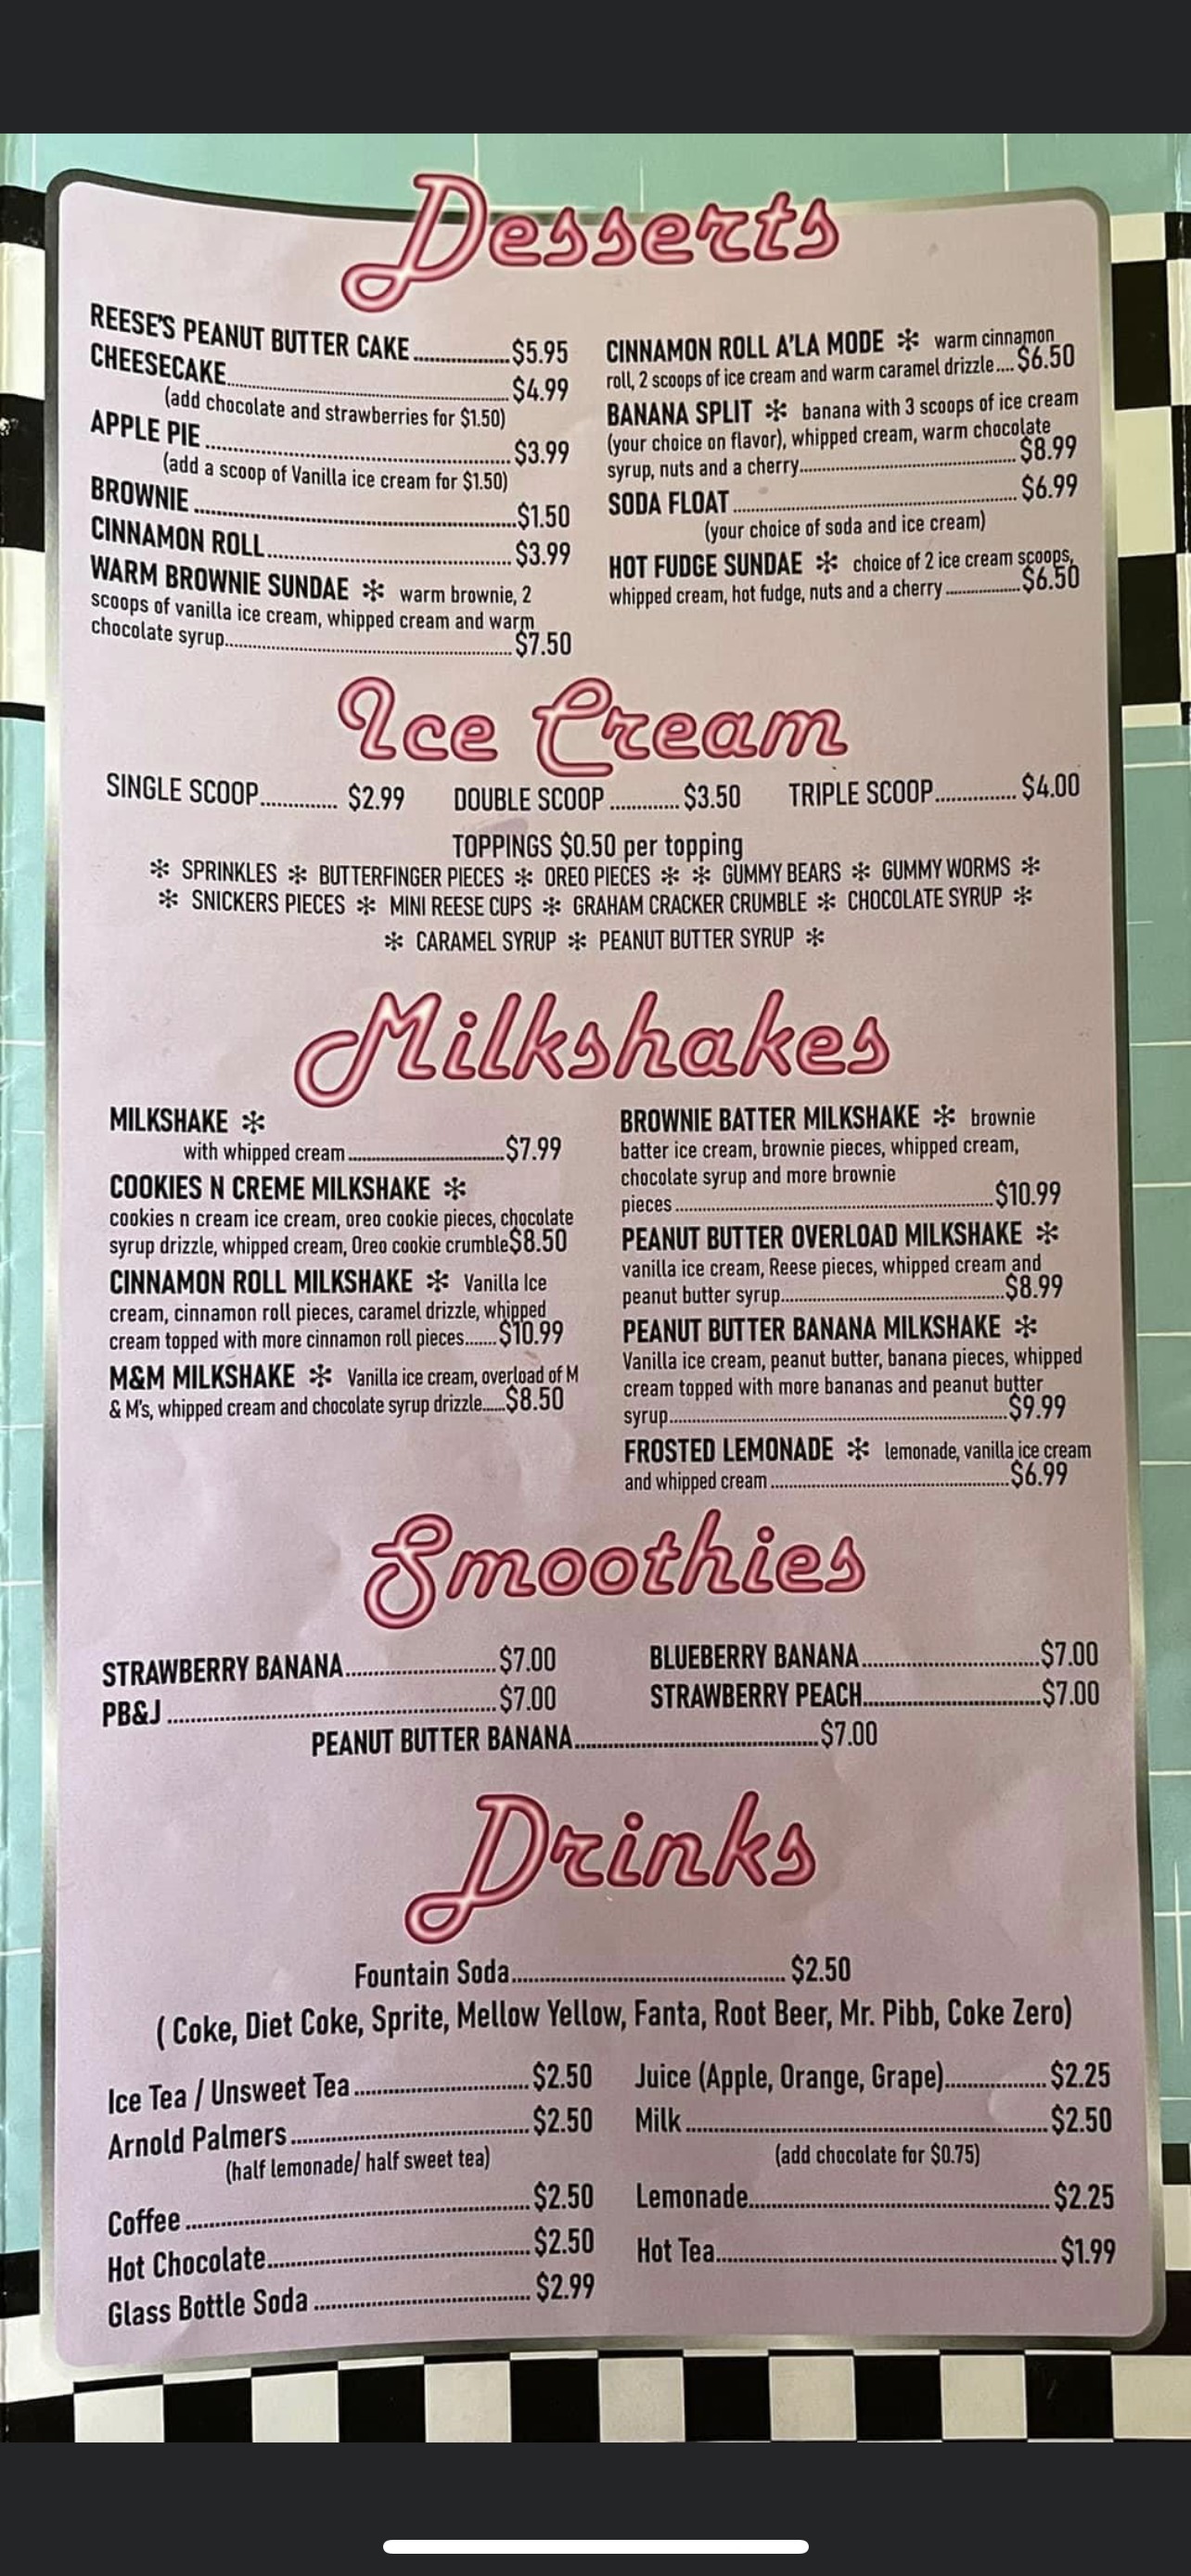 Desserts
REESE'S PEANUT BUTTER CAKE................$5.95
CHEESECAKE................$4.99
(add chocolate and strawberries for $1.50)
APPLE PIE................$3.99
(add a scoop of Vanilla ice cream for $1.50)
BROWNIE................$1.50
CINNAMON ROLL................$3.99
WARM BROWNIE SUNDAE ✻ warm brownie, 2
scoops of vanilla ice cream, whipped cream and warm
chocolate syrup................$7.50
CINNAMON ROLL A'LA MODE ✻ warm cinnamon
roll, 2 scoops of ice cream and warm caramel drizzle.... $6.50
BANANA SPLIT ✻ banana with 3 scoops of ice cream
(your choice on flavor), whipped cream, warm chocolate
syrup, nuts and a cherry................$8.99
SODA FLOAT................$6.99
(your choice of soda and ice cream)
HOT FUDGE SUNDAE ✻ choice of 2 ice cream scoops,
whipped cream, hot fudge, nuts and a cherry................$6.50
Ice Cream
SINGLE SCOOP............. $2.99 DOUBLE SCOOP............ $3.50 TRIPLE SCOOP.............. $4.00
TOPPINGS $0.50 per topping
✻ SPRINKLES ✻ BUTTERFINGER PIECES ✻ OREO PIECES ✻ ✻ GUMMY BEARS ✻ GUMMY WORMS ✻
✻ SNICKERS PIECES ✻ MINI REESE CUPS ✻ GRAHAM CRACKER CRUMBLE ✻ CHOCOLATE SYRUP ✻
✻ CARAMEL SYRUP ✻ PEANUT BUTTER SYRUP ✻
Milkshakes
MILKSHAKE ✻
with whipped cream................$7.99
COOKIES N CREME MILKSHAKE ✻
cookies n cream ice cream, oreo cookie pieces, chocolate
syrup drizzle, whipped cream, Oreo cookie crumble$8.50
CINNAMON ROLL MILKSHAKE ✻ Vanilla Ice
cream, cinnamon roll pieces, caramel drizzle, whipped
cream topped with more cinnamon roll pieces.......$10.99
M&M MILKSHAKE ✻ Vanilla ice cream, overload of M
& M's, whipped cream and chocolate syrup drizzle......$8.50
BROWNIE BATTER MILKSHAKE ✻ brownie
batter ice cream, brownie pieces, whipped cream,
chocolate syrup and more brownie
pieces................$10.99
PEANUT BUTTER OVERLOAD MILKSHAKE ✻
vanilla ice cream, Reese pieces, whipped cream and
peanut butter syrup................$8.99
PEANUT BUTTER BANANA MILKSHAKE ✻
Vanilla ice cream, peanut butter, banana pieces, whipped
cream topped with more bananas and peanut butter
syrup................$9.99
FROSTED LEMONADE ✻ lemonade, vanilla ice cream
and whipped cream................$6.99
Smoothies
STRAWBERRY BANANA................$7.00
PB&J................$7.00
BLUEBERRY BANANA................$7.00
STRAWBERRY PEACH................$7.00
PEANUT BUTTER BANANA................$7.00
Drinks
Fountain Soda................ $2.50
( Coke, Diet Coke, Sprite, Mellow Yellow, Fanta, Root Beer, Mr. Pibb, Coke Zero)
Ice Tea / Unsweet Tea................ $2.50
Arnold Palmers................ $2.50
(half lemonade/ half sweet tea)
Coffee................ $2.50
Hot Chocolate................ $2.50
Glass Bottle Soda................ $2.99
Juice (Apple, Orange, Grape)................ $2.25
Milk................ $2.50
(add chocolate for $0.75)
Lemonade................ $2.25
Hot Tea................ $1.99